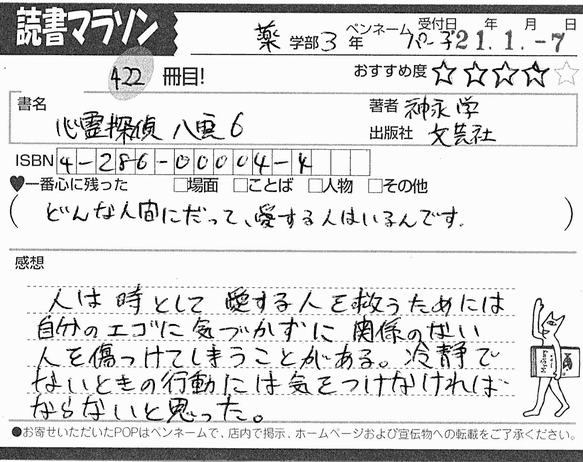 読書マラソン
薬 学部 3 年 ペンネーム パー子 受付日 年 月 日
21.1.-7
422 冊目! おすすめ度 ☆☆☆☆☆
書名 心霊探偵 八雲6
著者 神永学
出版社 文芸社
ISBN 4-286-00004-4
♥一番心に残った □場面 □ことば □人物 □その他
(どんな人間にだって、愛する人はいるんです。)
感想
人は時として愛する人を救うためには
自分のエゴに気づかずに関係のない
人を傷つけてしまうことがある。冷静で
ないときの行動には気をつけなければ
ならないと思った。
●お寄せいただいたPOPはペンネームで、店内で掲示、ホームページおよび宣伝物への転載をご了承ください。